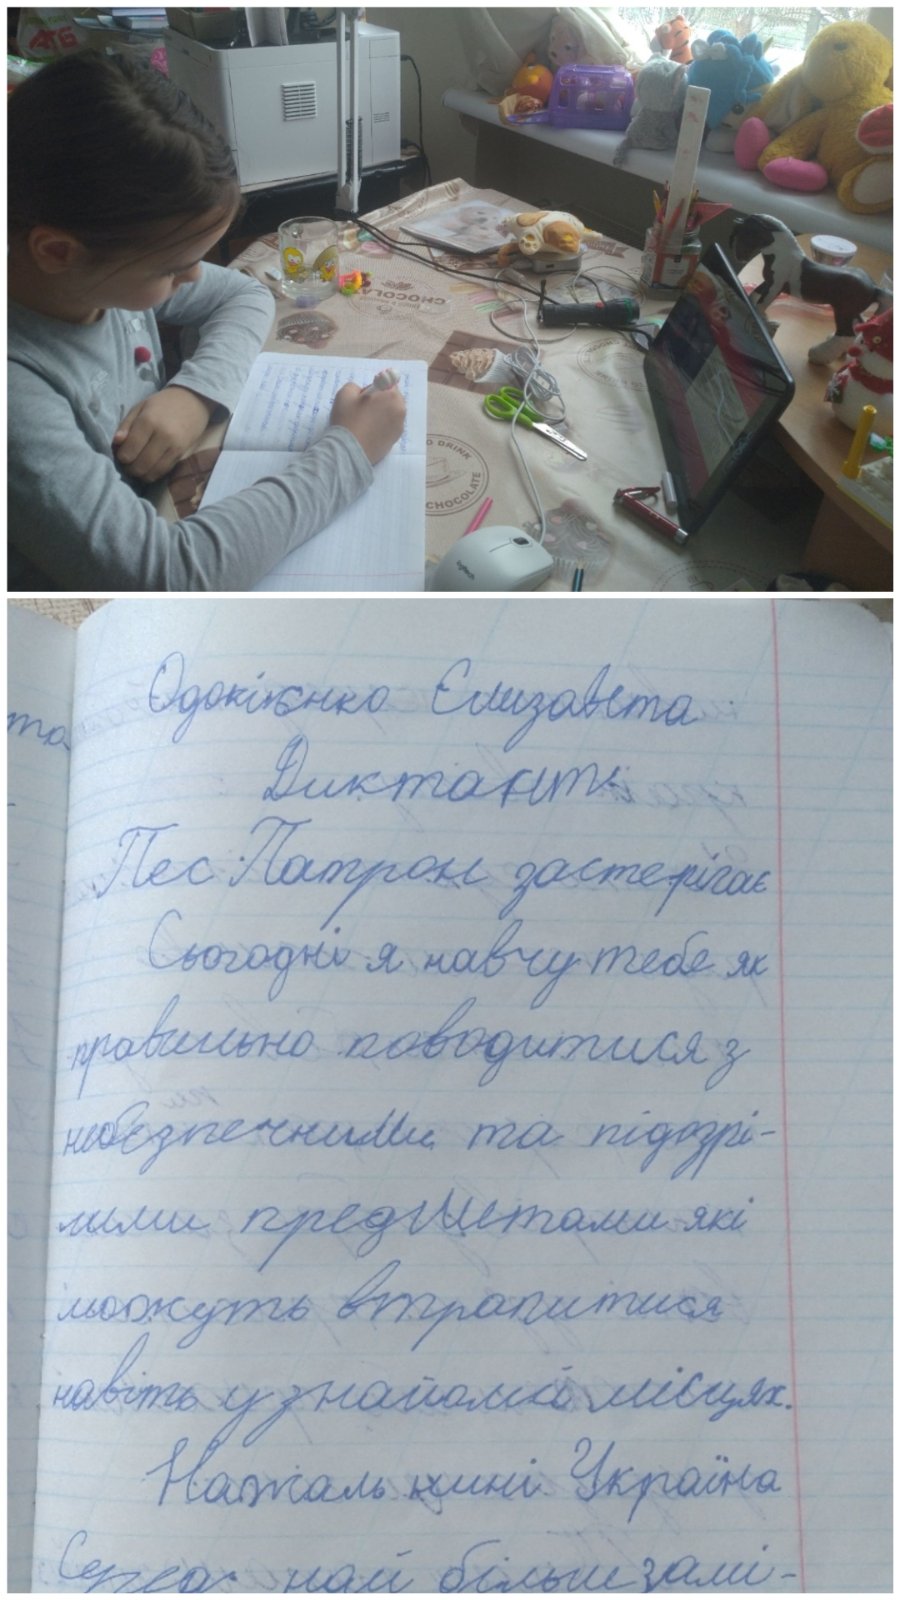 АТБ
CHOCOLATE
DRINK
CHOCOLATE
logitech
та
Одокієнко Єлизавета
Диктант
Пес Патрон застерігає
Сьогодні я навчу тебе як
правильно поводитися з
небезпечними та підозрі-
лими предметами які
можуть втрапитися
навіть у знайомих місцях.
Нажаль нині Україна
най більш замі-